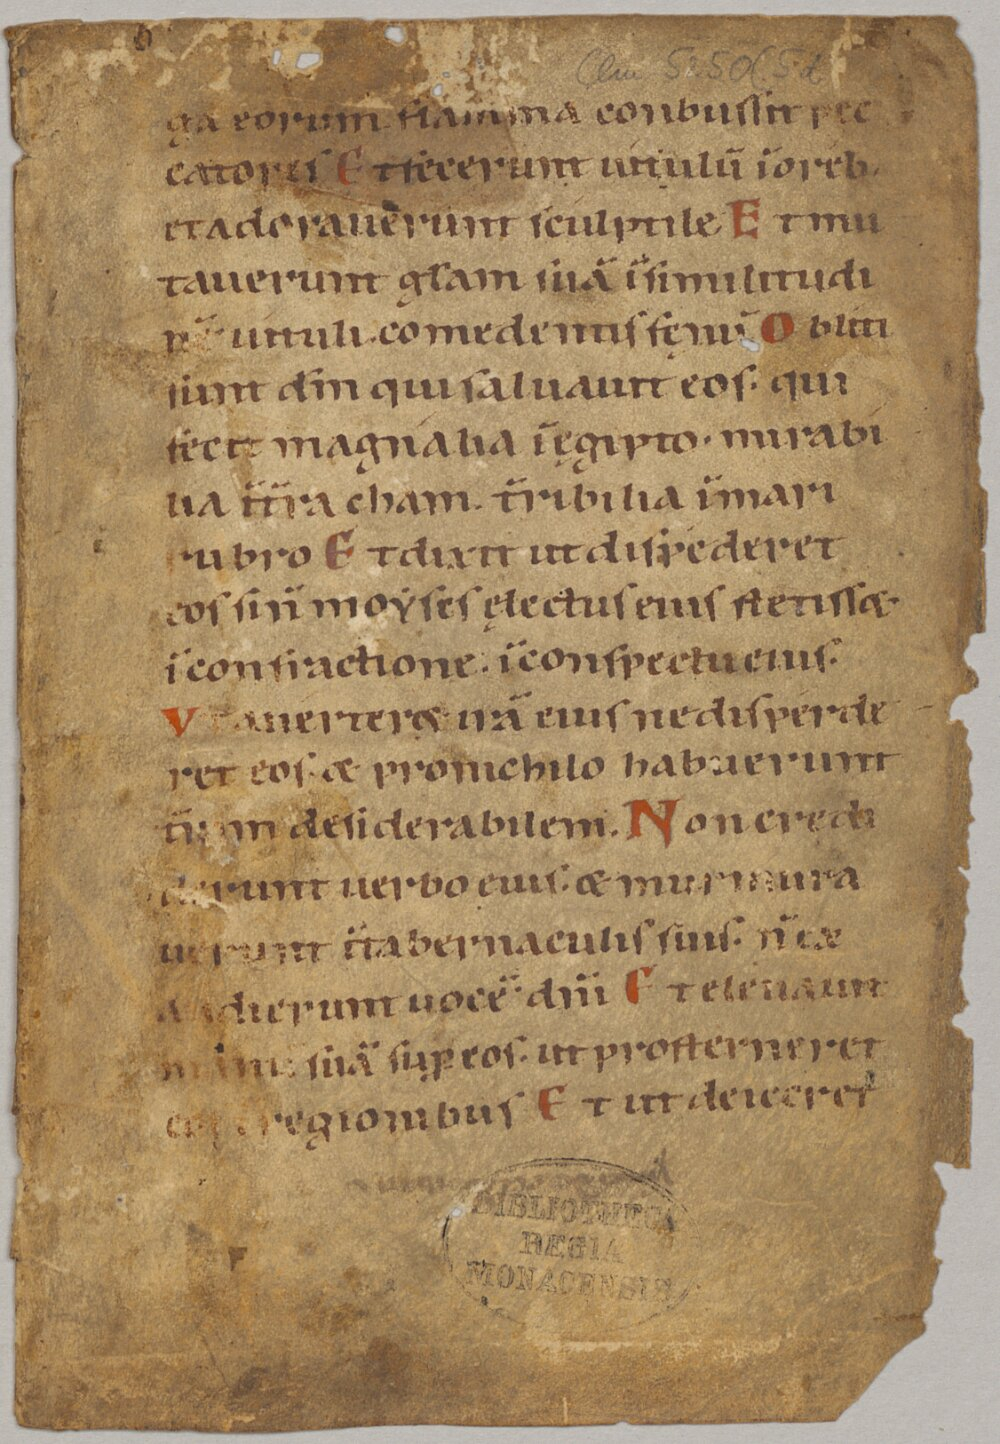 Clm 5250(5d
ga eorum flamma conbussit pec
catores Et fecerunt uitulū ī oreb.
et adorauerunt sculptile Et mu
tauerunt gl̄am suā ī similitudi
nē uituli. comedentis fęnū Obliti
sunt dm̄ qui saluauit eos. qui
fecit magnalia ī ęgipto. mirabi
lia ī t̄ra cham. t̄ribilia ī mari
rubro Et dixit ut disp̄ederet
eos si n̄ moẏses ęlectus eius stetiss&
ī confractione. ī conspectu eius.
Vt auerter& irā eius ne disperde
ret eos. & pro nichilo habuerunt
t̄ram desiderabilem. Non credi
derunt uerbo eius. & murmura
uerunt ī tabernaculis suis. n̄ ex
audierunt uocē dn̄i Et eleuauit
manū suā sup̄ eos. ut prosterneret
regionibus Et ut deieceret
BIBLIOTHECA
REGIA
MONACENSIS